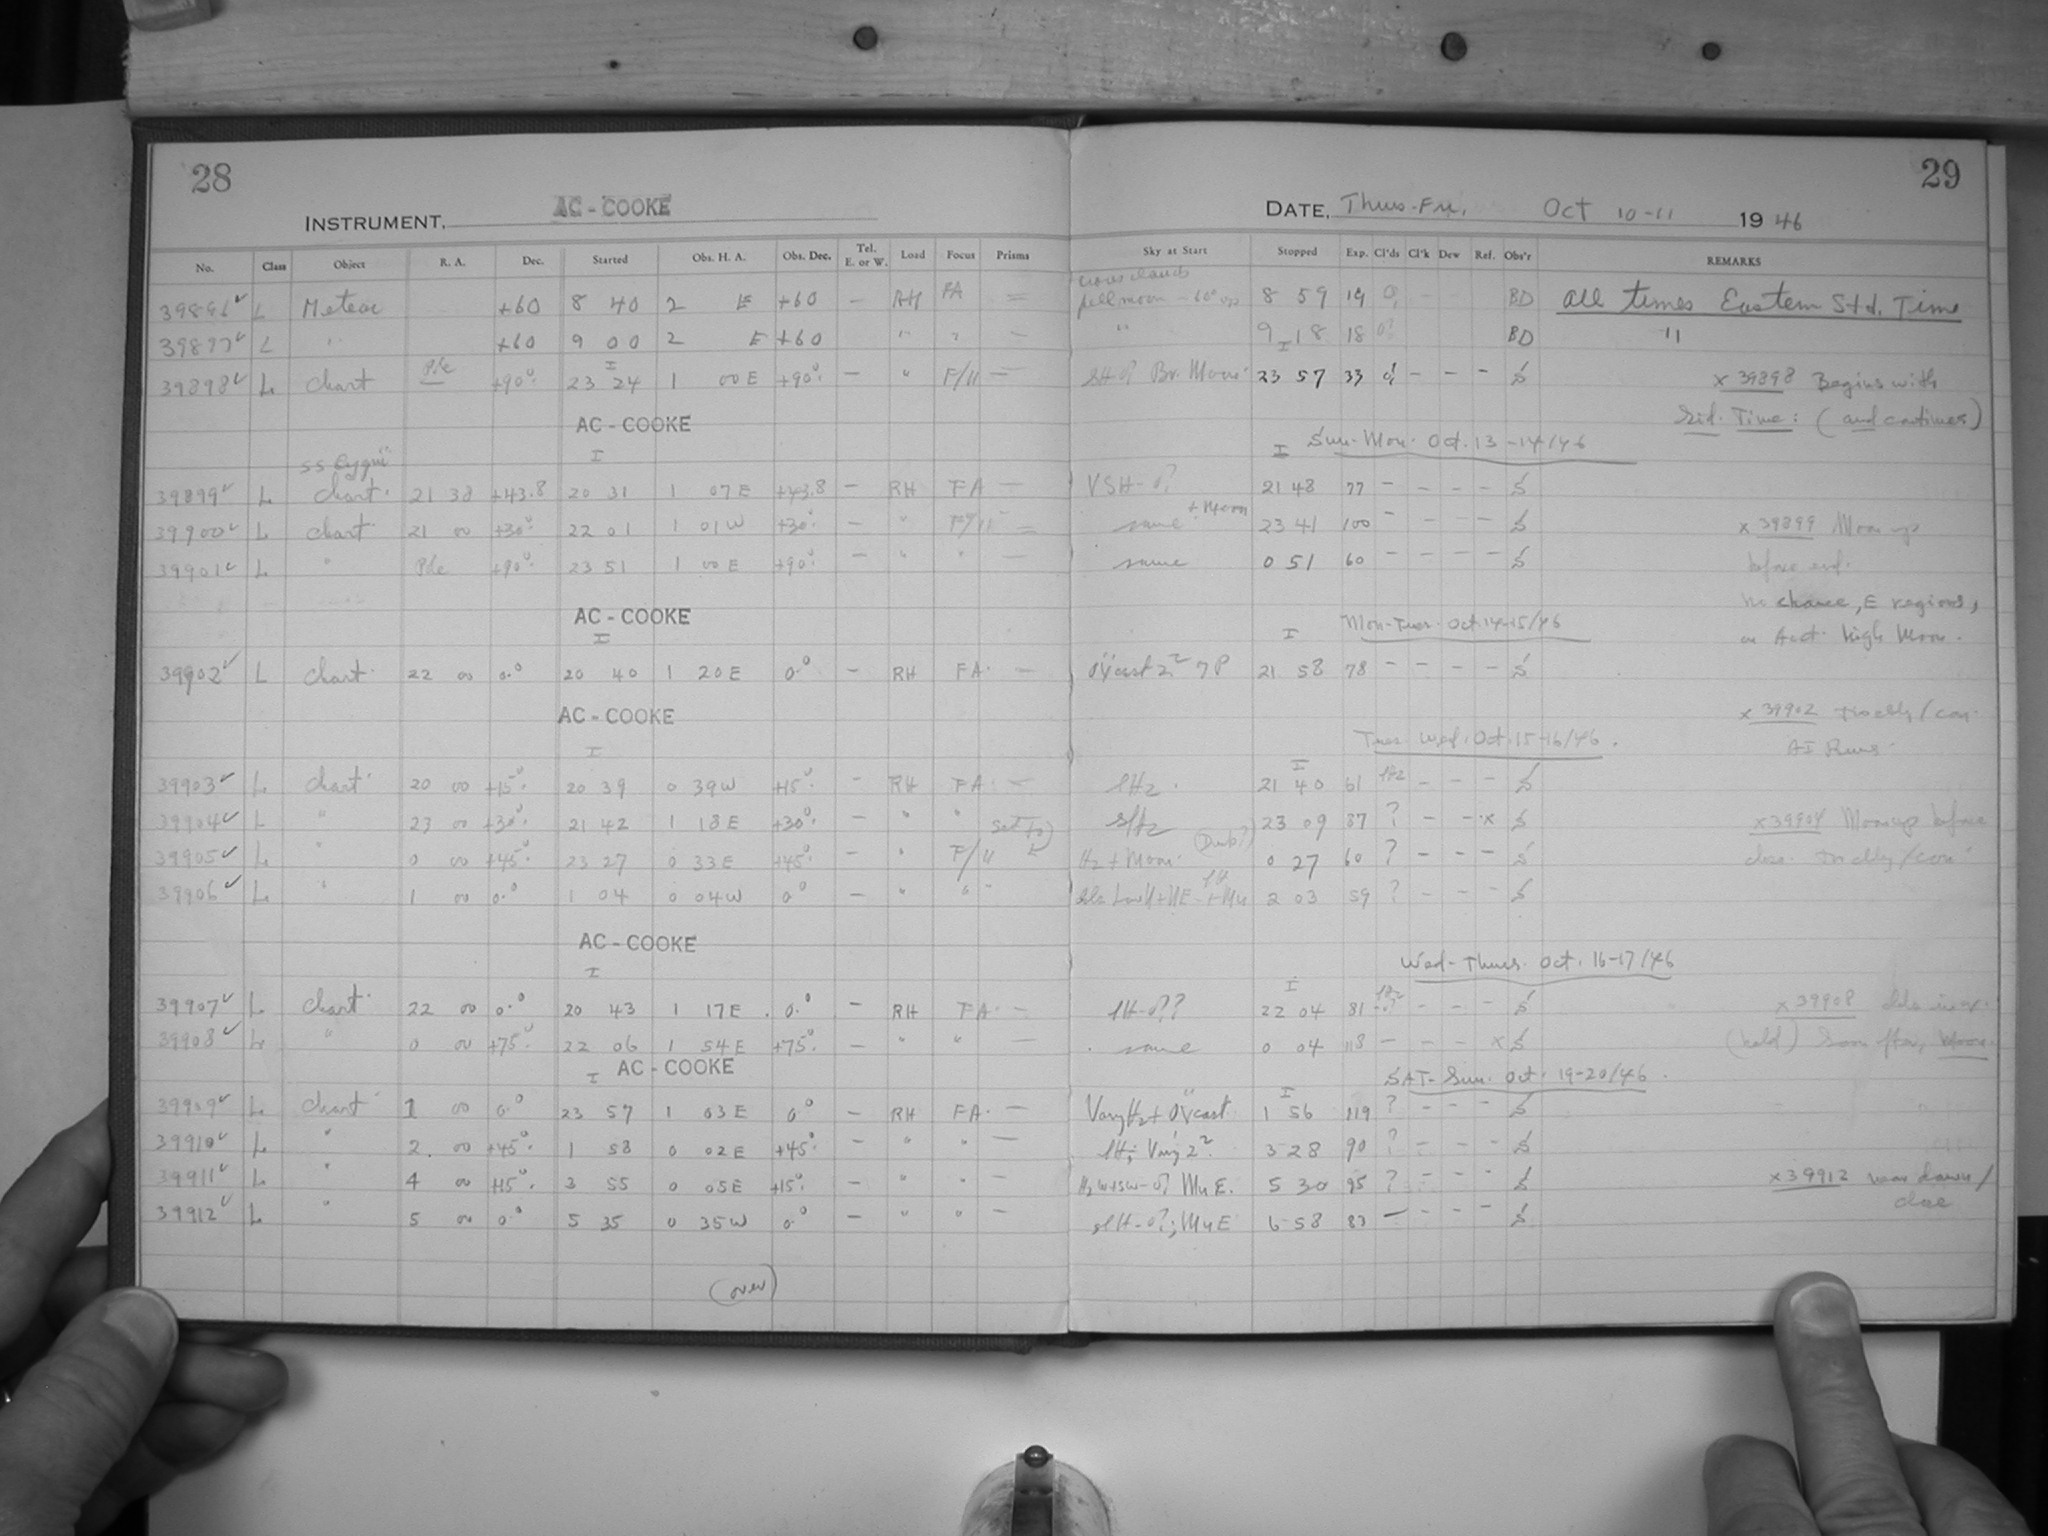 28
29
INSTRUMENT, AC - COOKE
DATE, Thurs-Fri, Oct 10-11 1946
No. Class Object R. A. Dec. Started Obs. H. A. Obs. Dec. Tel. E. or W. Load Focus Prisms Sky at Start Stopped Exp. Cl'ds Cl'k Dew Ref. Obs'r REMARKS
39896 L Meteor +60 8 40 2 E +60 - RH FA - full moon - 60° up 8 59 19 - BD All times Eastern Std. Time
39897 L " +60 9 00 2 E +60 - " " - " 9 18 18 BD "
39898 L Chart Pole +90° 23 24 1 00 E +90° - " F/11 - SH-0? Br. Moon 23 57 33 - - - S x 39898 Begins with
Sid. Time: (and continues)
AC - COOKE
I I Sun-Mon. Oct. 13-14/46
SS Cygni
39899 L Chart 21 38 +43.8 20 31 1 07 E +43.8 - RH FA - VSH-0? 21 48 77 - - - - S
39900 L Chart 21 00 +30° 22 01 1 01 W +30° - " F/11 - same + Moon 23 41 100 - - - - S x 39899 Moon up
39901 L " Pole +90° 23 51 1 00 E +90° - " " - same 0 51 60 - - - - S before end.
no chance, E regions,
AC - COOKE
I I Mon-Tues. Oct. 14-15/46
high Moon.
39902 L Chart 22 00 0.° 20 40 1 20 E 0° - RH FA - 21 58 78 - - - - S
AC - COOKE
x 39902
I I Tues-Wed. Oct. 15-16/46.
39903 L Chart 20 00 +15° 20 39 0 39 W +15° - RH FA - SH2. 21 40 61 - - - S
39904 L " 23 00 +30° 21 42 1 18 E +30° - " " SH2 23 09 87 ? - - x S x 39904 Moon up before
39905 L " 0 00 +45° 23 27 0 33 E +45° - " F/11 H2 + Moon 0 27 60 ? - - - S close.
39906 L " 1 00 0.° 1 04 0 04 W 0° - " " " 2 03 59 ? - - - S
AC - COOKE
I I Wed-Thurs. Oct. 16-17/46
39907 L Chart 22 00 0.° 20 43 1 17 E 0.° - RH FA - SH-0?? 22 04 81 - - - S x 39908
39908 L " 0 00 +75° 22 06 1 54 E +75° - " " - same 0 04 118 - - - x S (held) Soon after, Moon.
I AC - COOKE I SAT-Sun. Oct. 19-20/46.
39909 L Chart 1 00 0.° 23 57 1 03 E 0° - RH FA - Vary H2 + 1 56 119 ? - - - S
39910 L " 2 00 +45° 1 58 0 02 E +45° - " " - 3 28 90 ? - - - S
39911 L " 4 00 +15° 3 55 0 05 E +15° - " " - 5 30 95 ? - - - S x 39912 near dawn/
39912 L " 5 00 0.° 5 35 0 35 W 0° - " " - 6 58 83 - - - - S close
(over)